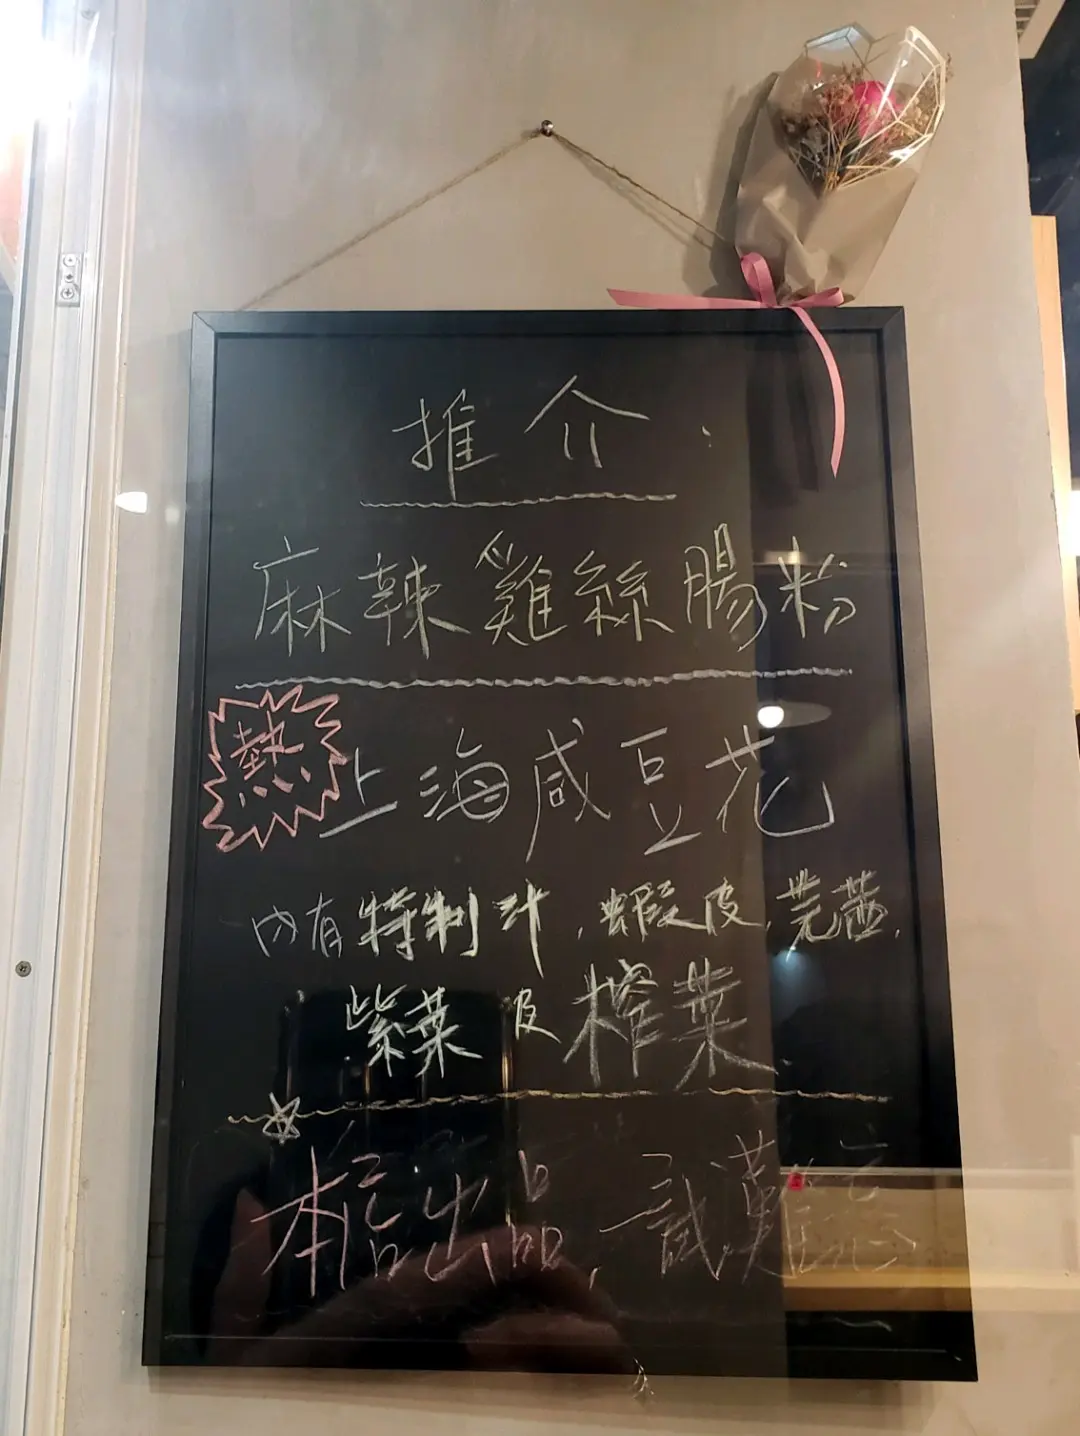 推介：
麻辣雞絲腸粉
熱
上海咸豆花
內有特制汁,蝦皮,芫茜,
紫菜及榨菜.
本店出品,一試難忘